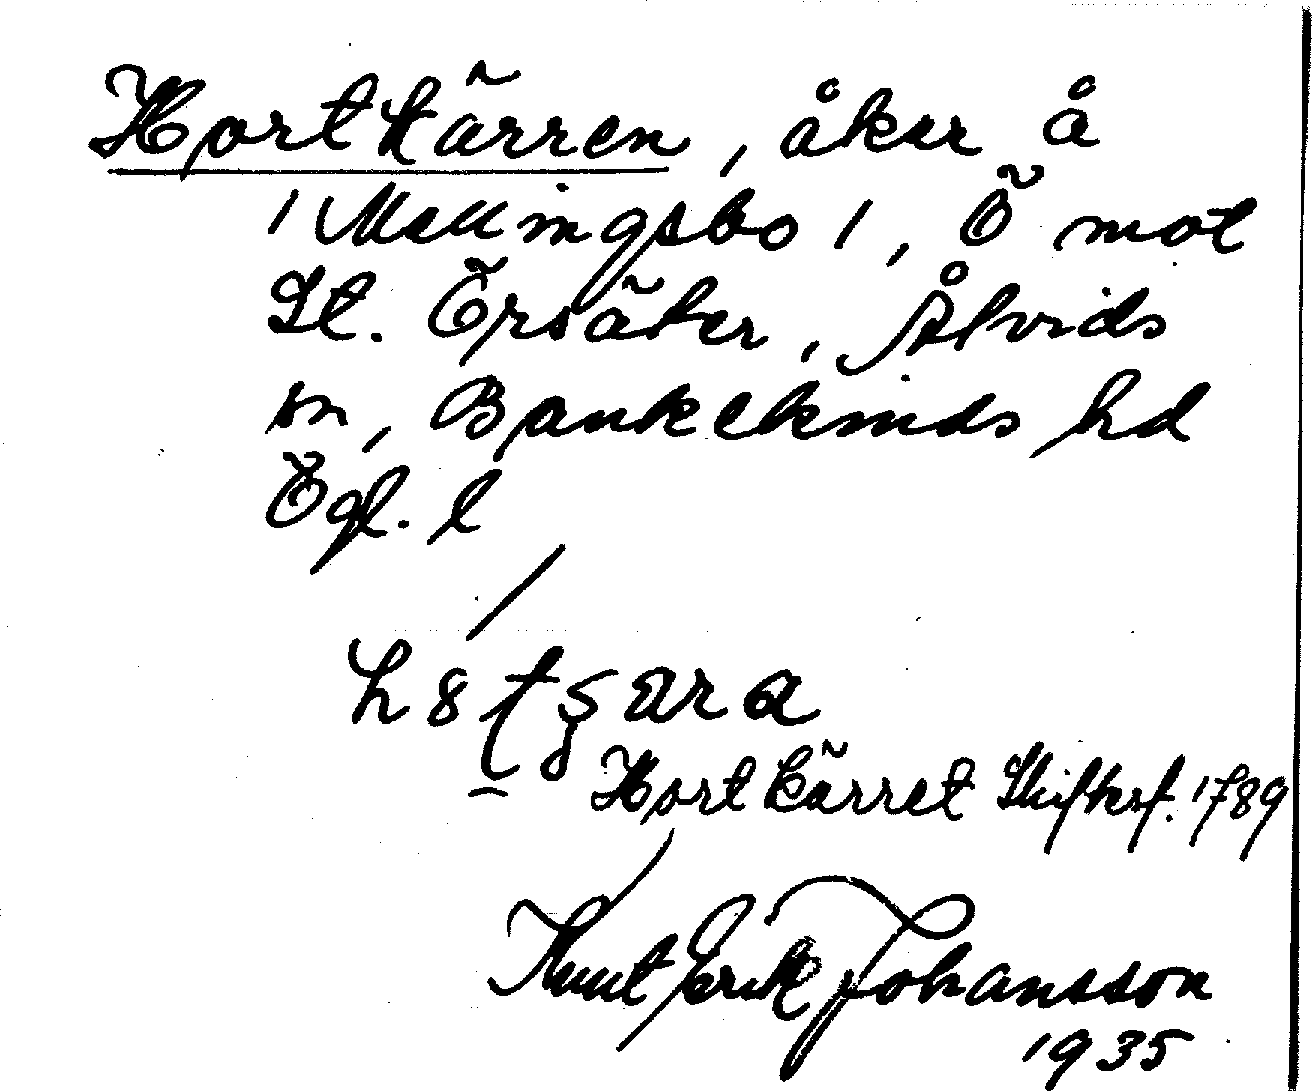 Hortkärren, åker å
1 Mellingsbo 1, Ö mot
St. Örsäter, Åtvids
sn, Bankekinds hd
Ögl. l
Hortkärret Skiftesf. 1789
Knut Erik Johansson
1935